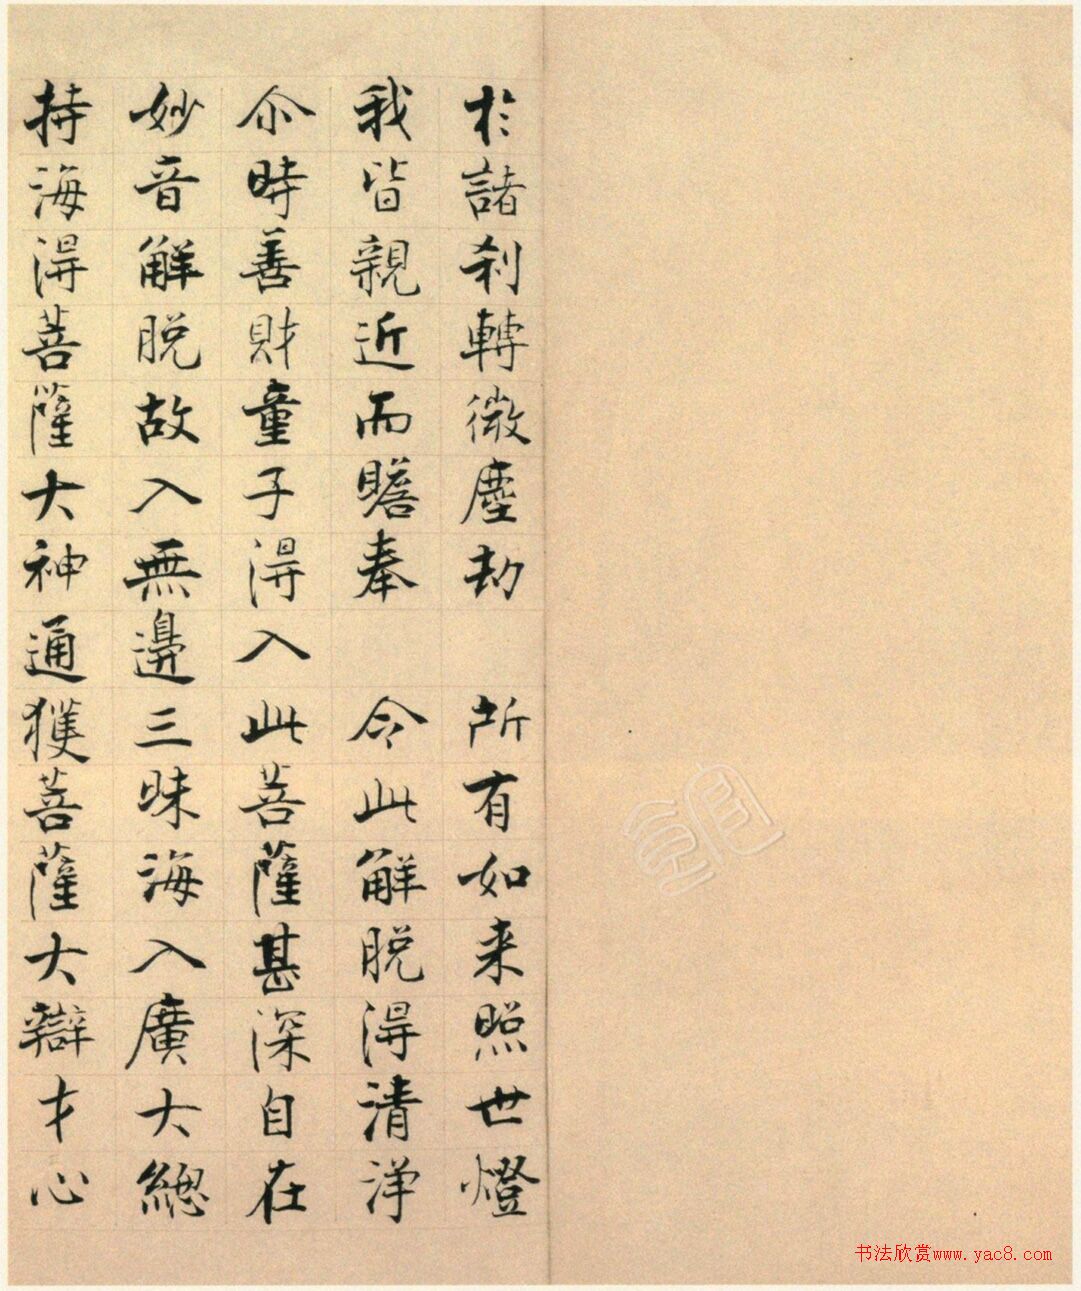 於諸刹轉微塵劫　所有如来照世燈
我皆親近而瞻奉　令此解脱得清淨
尒時善財童子得入此菩薩甚深自在
妙音解脱故入無邊三昧海入廣大總
持海得菩薩大神通獲菩薩大辯才心
书法欣赏www.yac8.com